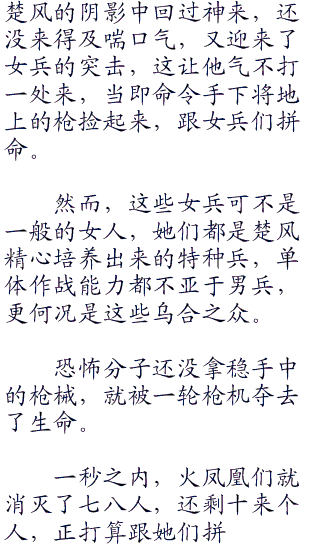 楚风的阴影中回过神来，还
没来得及喘口气，又迎来了
女兵的突击，这让他气不打
一处来，当即命令手下将地
上的枪捡起来，跟女兵们拼
命。
然而，这些女兵可不是
一般的女人，她们都是楚风
精心培养出来的特种兵，单
体作战能力都不亚于男兵，
更何况是这些乌合之众。
恐怖分子还没拿稳手中
的枪械，就被一轮枪机夺去
了生命。
一秒之内，火凤凰们就
消灭了七八人，还剩十来个
人，正打算跟她们拼